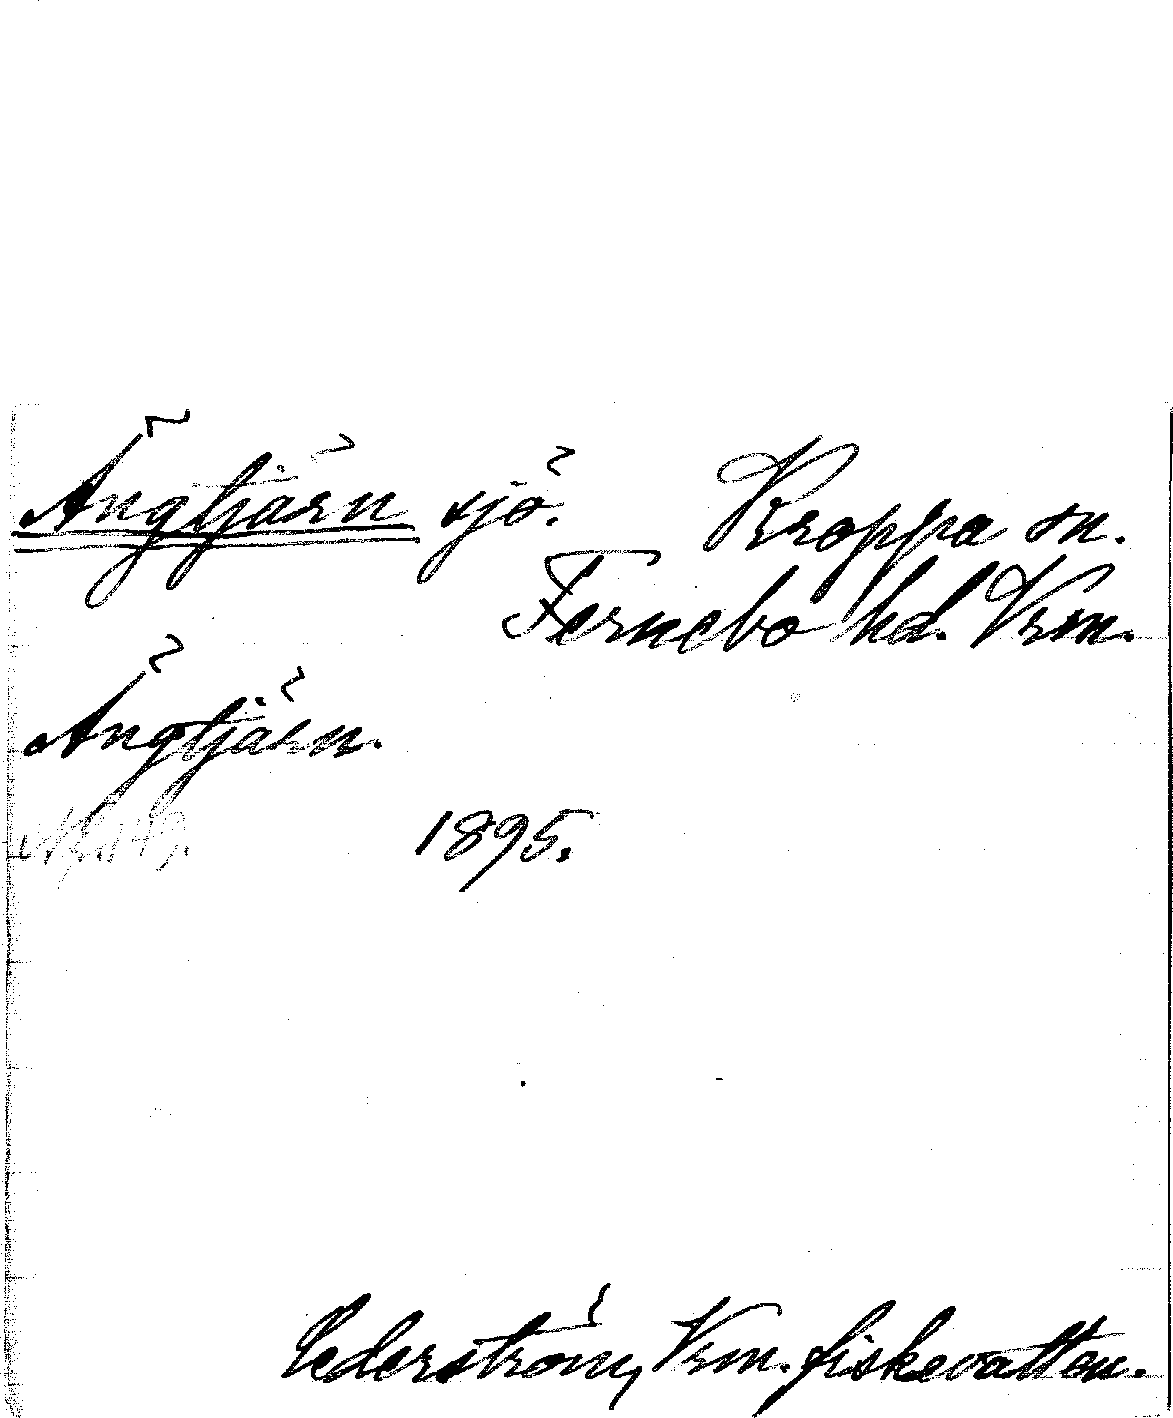 Ängtjärn sjö. Kroppa sn.
Fernebo hd. Vrm.
Ängtjärn.
1895.
Cederström, Vrm. fiskevatten.